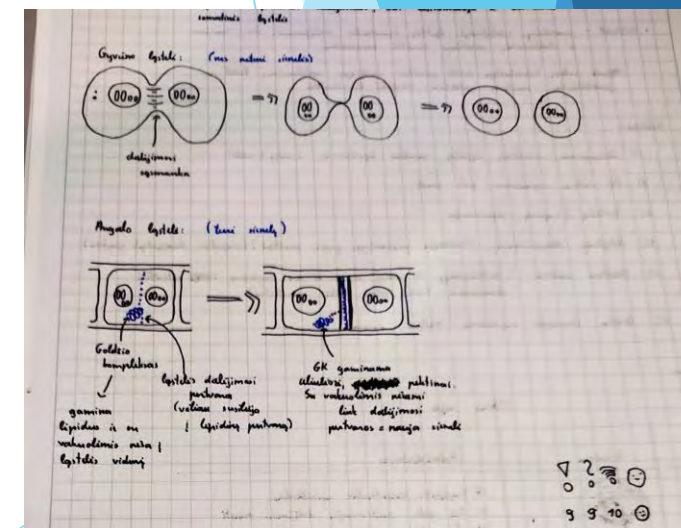 somatinės ląstelės
Gyvūno ląstelė: (nes neturi sienelės)
dalijimosi
sąsmauka
Augalo ląstelė: (turi sienelę)
Goldžio
kompleksas
gamina
lipidus ir su
vakuolėmis neša į
ląstelės vidurį
ląstelės dalijimosi
pertvara
(vėliau susilieja
į lipidinę pertvarą)
GK gaminama
celiuliozė, pektinai.
Su vakuolėmis nešami
link dalijimosi
pertvaros = nauja sienelė
9 9 10